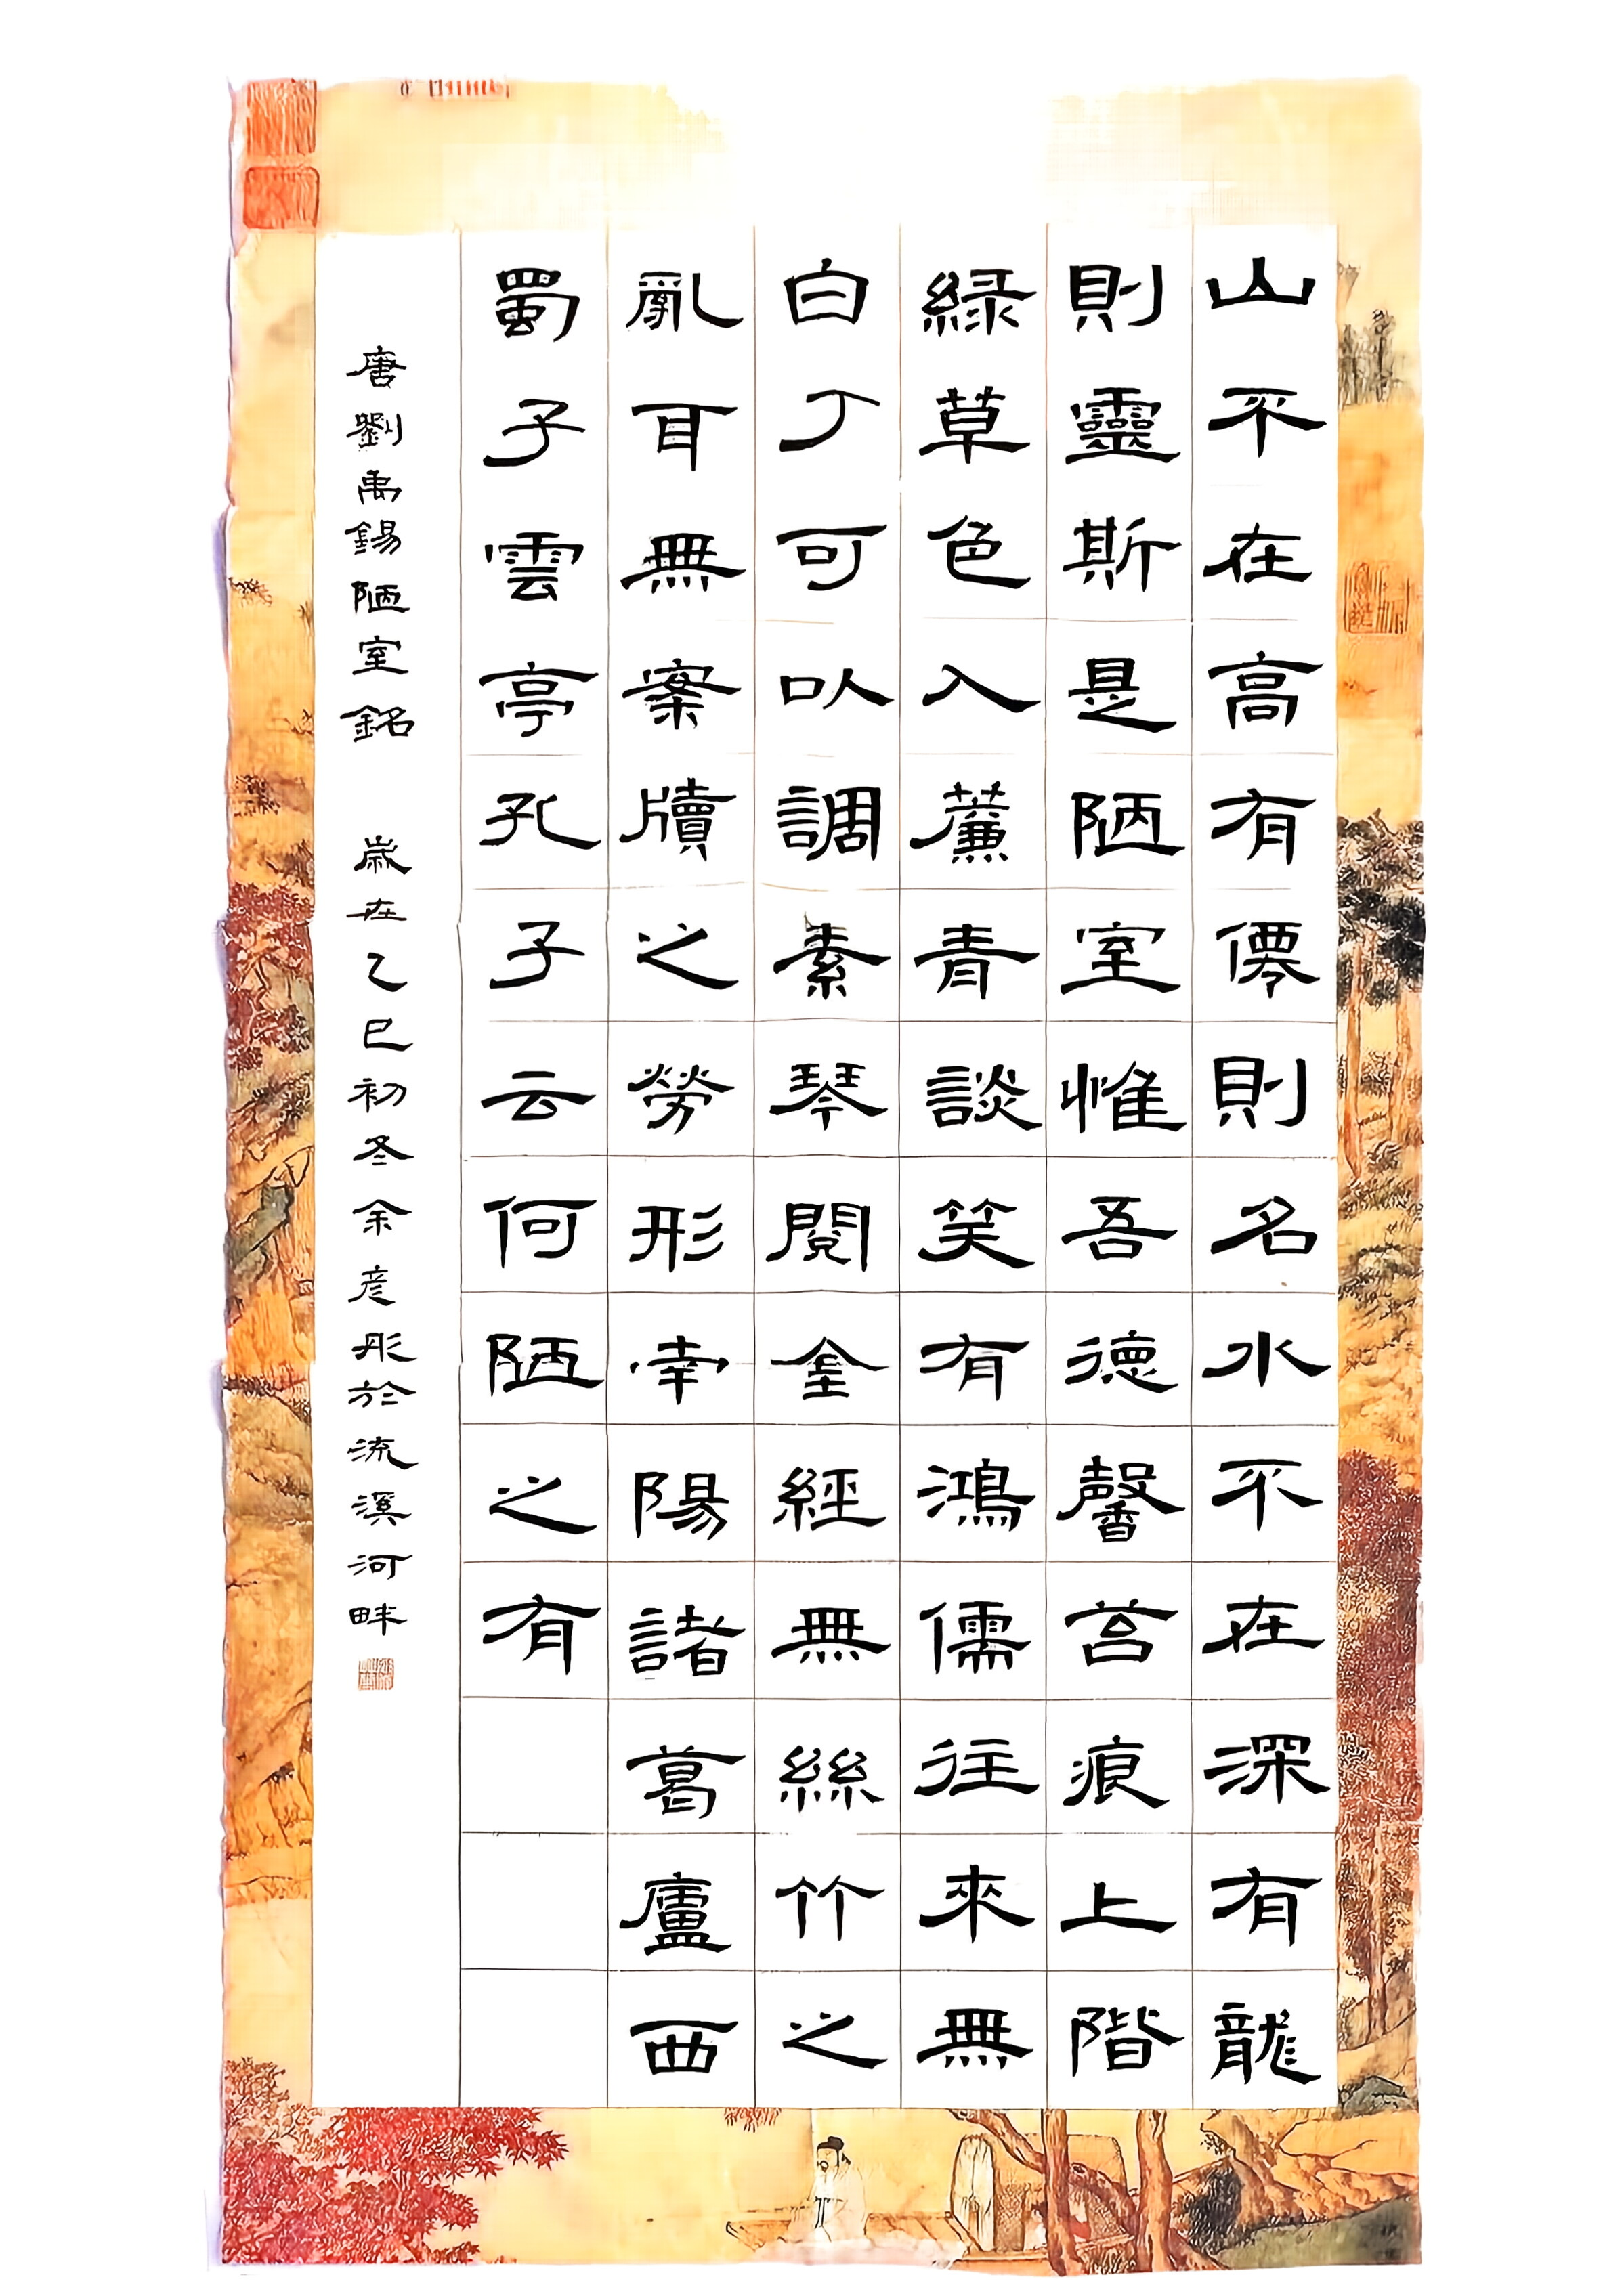 山不在高有僊則名水不在深有龍
則靈斯是陋室惟吾德馨苔痕上階
緑草色入薕青談笑有鴻儒往來無
白丁可以調素琴閱金經無絲竹之
亂耳無案牘之勞形幸陽諸葛廬西
蜀子雲亭孔子云何陋之有
唐劉禹錫陋室銘 歲在乙巳初冬余彥彤於流溪河畔